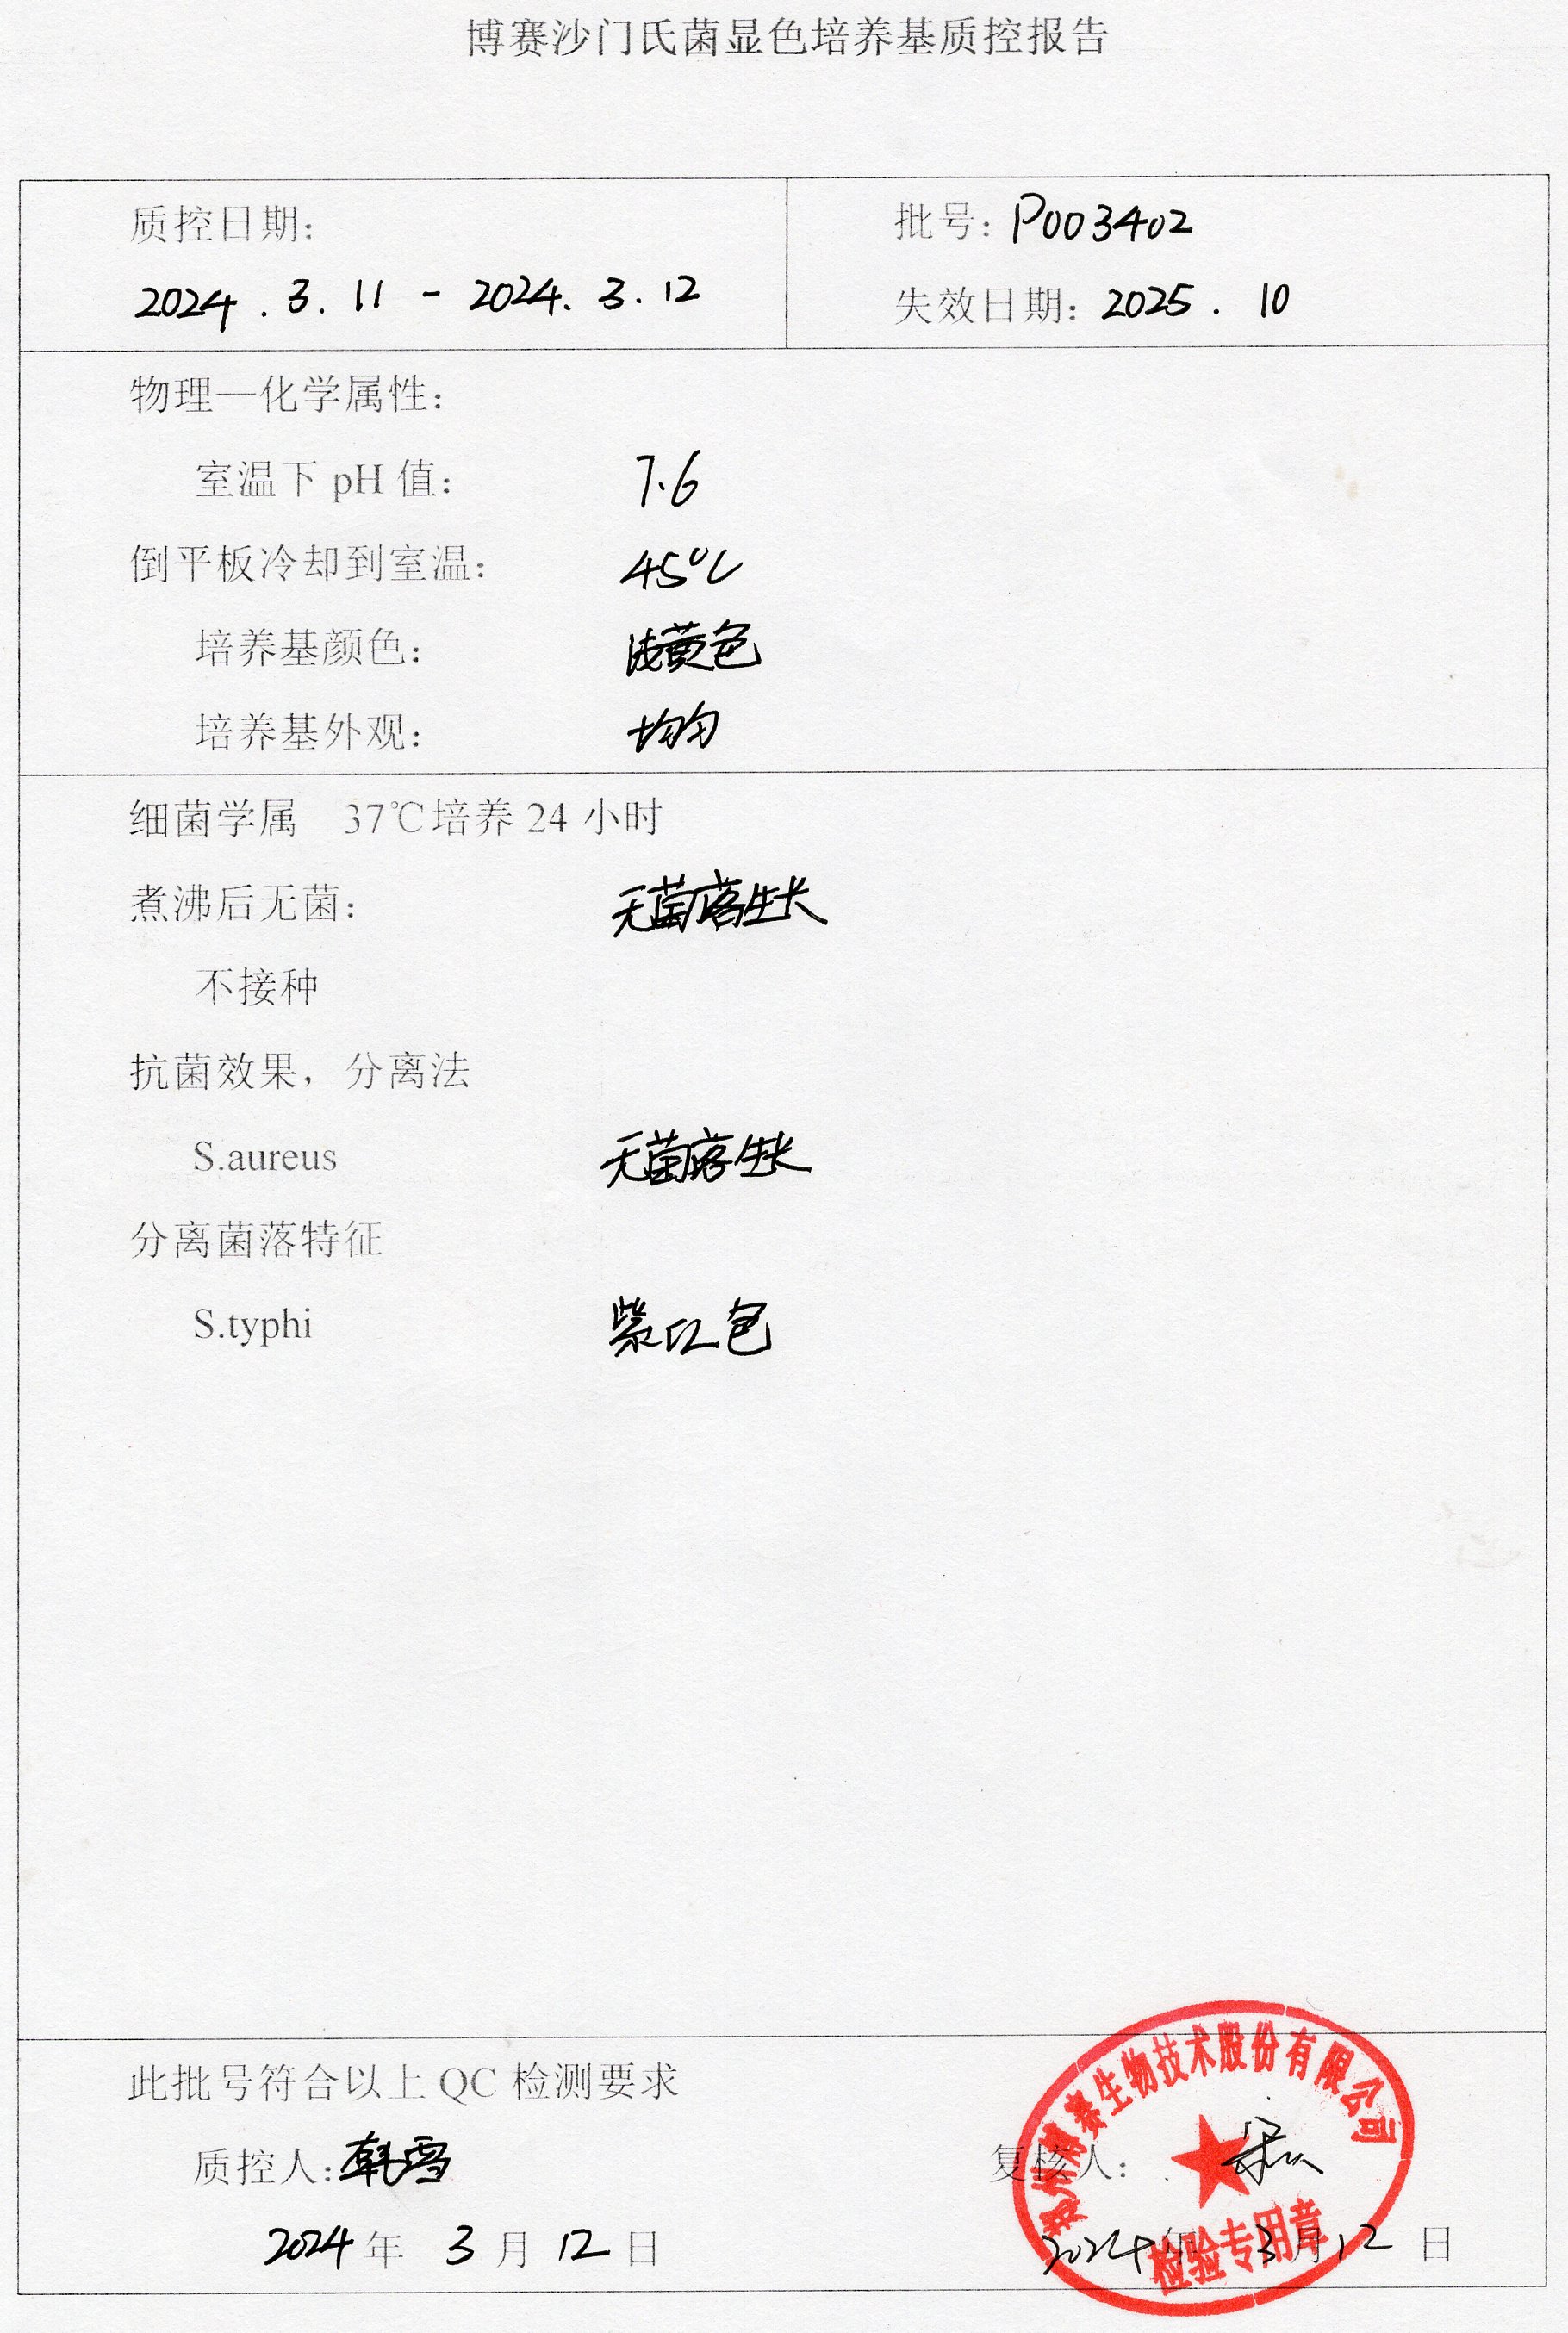 博赛沙门氏菌显色培养基质控报告
质控日期:
2024.3.11-2024.3.12
批号: P003402
失效日期: 2025.10
物理—化学属性:
室温下 pH 值: 7.6
倒平板冷却到室温: 45℃
培养基颜色: 浅黄色
培养基外观: 均匀
细菌学属 37℃培养 24 小时
煮沸后无菌: 无菌落生长
不接种
抗菌效果，分离法
S.aureus 无菌落生长
分离菌落特征
S.typhi 紫红色
此批号符合以上 QC 检测要求
质控人: 韩雪
复核人:
2024 年 3 月 12 日
2024 年 3 月 12 日
郑州博赛生物技术股份有限公司
检验专用章